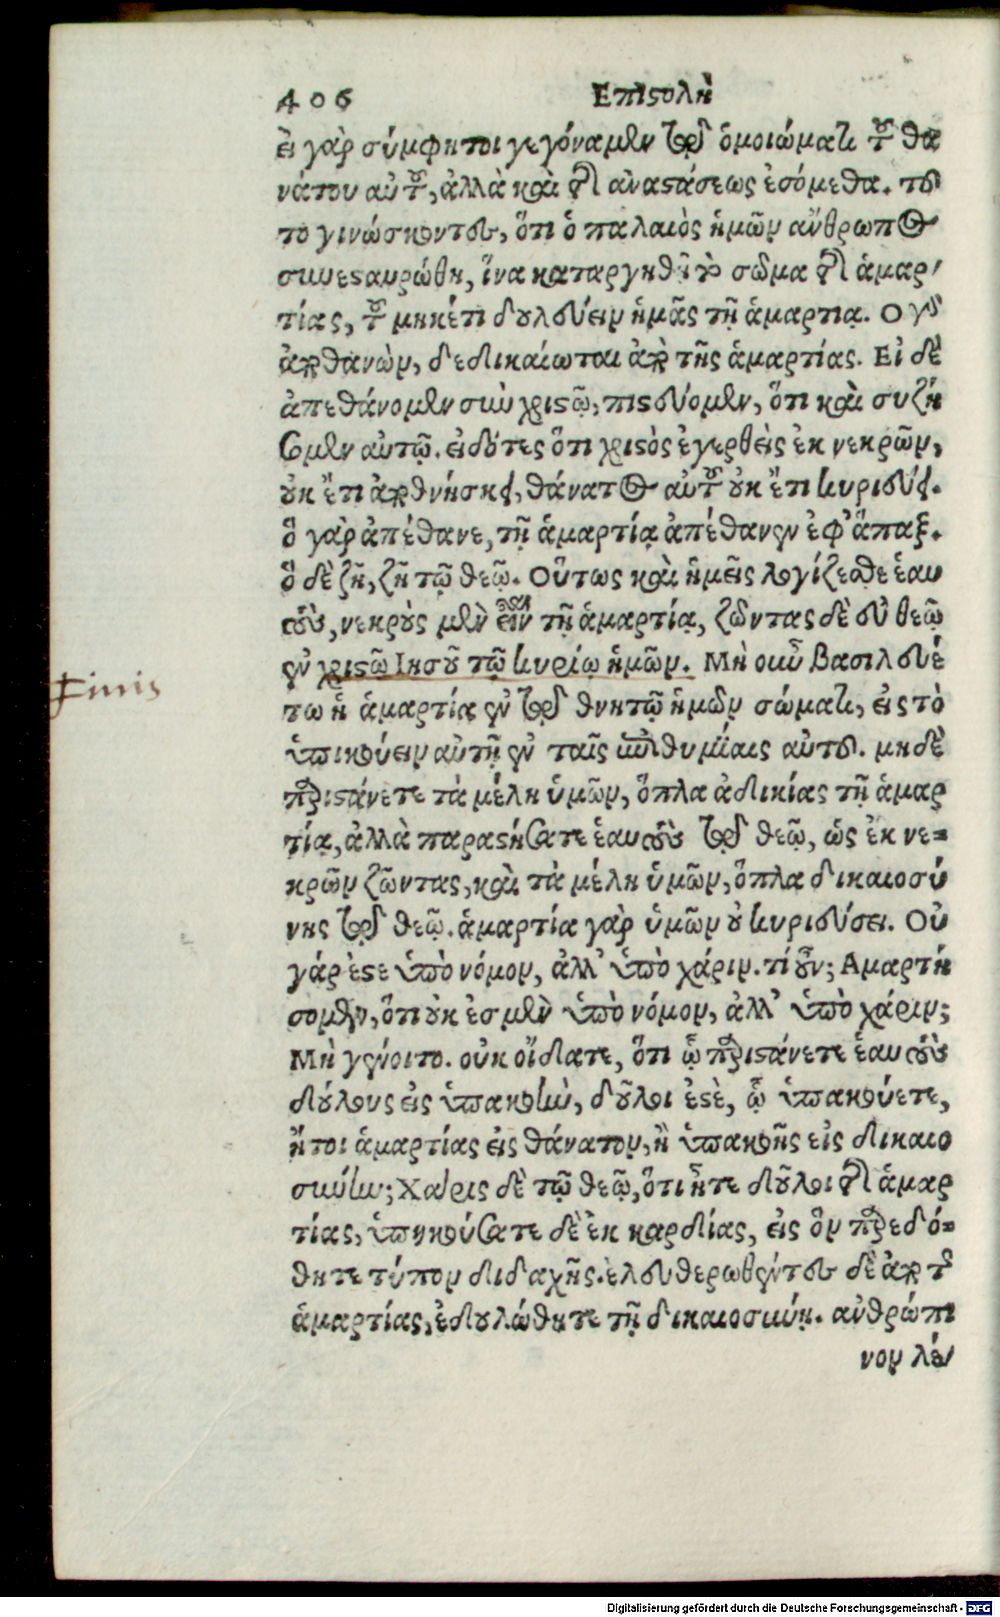 406 Επιϛολὴ
εἰ γὰρ σύμφητοι γεγόναμεν τῷ ὁμοιώματι τοῦ θα
νάτου αὐτοῦ, ἀλλὰ καὶ τῆς ἀναϛάσεως ἐσόμεθα. τοῦ
το γινώσκοντες, ὅτι ὁ παλαιὸς ἡμῶν ἄνθρωπος
συνεϛαυρώθη, ἵνα καταργηθῇ τὸ σῶμα τῆς ἁμαρ
τίας, τοῦ μηκέτι δουλεύειν ἡμᾶς τῇ ἁμαρτίᾳ. Ο γὰρ
ἀποθανὼν, δεδικαίωται ἀπὸ τῆς ἁμαρτίας. Εἰ δὲ
ἀπεθάνομεν σὺν χριϛῷ, πιϛεύομεν, ὅτι καὶ συζή
σομεν αὐτῷ. εἰδότες ὅτι χριϛὸς ἐγερθεὶς ἐκ νεκρῶν,
οὐκ ἔτι ἀποθνήσκει, θάνατος αὐτοῦ οὐκ ἔτι κυριεύει.
ὃ γὰρ ἀπέθανε, τῇ ἁμαρτίᾳ ἀπέθανεν ἐφ' ἅπαξ.
ὃ δὲ ζῇ, ζῇ τῷ θεῷ. Οὕτως καὶ ἡμεῖς λογίζεσθε ἑαυ
τοὺς, νεκροὺς μὲν εἶναι τῇ ἁμαρτίᾳ, ζῶντας δὲ τῷ θεῷ
ἐν χριϛῷ Ιησοῦ τῷ κυρίῳ ἡμῶν. Μὴ οὖν βασιλευέ
Finis
τω ἡ ἁμαρτία ἐν τῷ θνητῷ ἡμῶν σώματι, εἰς τὸ
ὑπακούειν αὐτῇ ἐν ταῖς ἐπιθυμίαις αὐτοῦ. μηδὲ
παριϛάνετε τὰ μέλη ὑμῶν, ὅπλα ἀδικίας τῇ ἁμαρ
τίᾳ, ἀλλὰ παραϛήσατε ἑαυτοὺς τῷ θεῷ, ὡς ἐκ νε=
κρῶν ζῶντας, καὶ τὰ μέλη ὑμῶν, ὅπλα δικαιοσύ
νης τῷ θεῷ. ἁμαρτία γὰρ ὑμῶν οὐ κυριεύσει. Οὐ
γάρ ἐϛε ὑπὸ νόμον, ἀλλ' ὑπὸ χάριν. τί οὖν; Αμαρτή
σομεν, ὅτι οὐκ ἐσμὲν ὑπὸ νόμον, ἀλλ' ὑπὸ χάριν;
Μὴ γένοιτο. οὐκ οἴδατε, ὅτι ᾧ παριϛάνετε ἑαυτοὺς
δούλους εἰς ὑπακοὴν, δοῦλοι ἐϛὲ, ᾧ ὑπακούετε,
ἤτοι ἁμαρτίας εἰς θάνατον, ἢ ὑπακοῆς εἰς δικαιο
σύνην; Χάρις δὲ τῷ θεῷ, ὅτι ἦτε δοῦλοι τῆς ἁμαρ
τίας, ὑπηκούσατε δὲ ἐκ καρδίας, εἰς ὃν παρεδό=
θητε τύπον διδαχῆς. ἐλευθερωθέντες δὲ ἀπὸ τῆς
ἁμαρτίας, ἐδουλώθητε τῇ δικαιοσύνῃ. ἀνθρώπι
νον λέ/
Digitalisierung gefördert durch die Deutsche Forschungsgemeinschaft - DFG